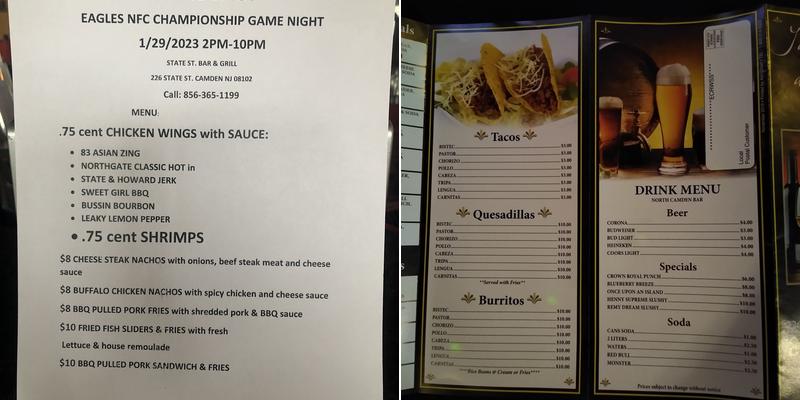 EAGLES NFC CHAMPIONSHIP GAME NIGHT
1/29/2023 2PM-10PM
STATE ST. BAR & GRILL
226 STATE ST. CAMDEN NJ 08102
Call: 856-365-1199
MENU:
.75 cent CHICKEN WINGS with SAUCE:
• 83 ASIAN ZING
• NORTHGATE CLASSIC HOT in
• STATE & HOWARD JERK
• SWEET GIRL BBQ
• BUSSIN BOURBON
• LEAKY LEMON PEPPER
• .75 cent SHRIMPS
$8 CHEESE STEAK NACHOS with onions, beef steak meat and cheese
sauce
$8 BUFFALO CHICKEN NACHOS with spicy chicken and cheese sauce
$8 BBQ PULLED PORK FRIES with shredded pork & BBQ sauce
$10 FRIED FISH SLIDERS & FRIES with fresh
Lettuce & house remoulade
$10 BBQ PULLED PORK SANDWICH & FRIES
Tacos
BISTEC $3.00
PASTOR $3.00
CHORIZO $3.00
POLLO $3.00
CABEZA $3.00
TRIPA $3.00
LENGUA $3.00
CARNITAS $3.00
Quesadillas
BISTEC $10.00
PASTOR $10.00
CHORIZO $10.00
POLLO $10.00
CABEZA $10.00
TRIPA $10.00
LENGUA $10.00
CARNITAS $10.00
**Served with Fries**
Burritos
BISTEC $10.00
PASTOR $10.00
CHORIZO $10.00
POLLO $10.00
CABEZA $10.00
TRIPA $10.00
LENGUA $10.00
CARNITAS $10.00
Rice Beans & Cream or Fries****
*****ECRWSS****
Local
Postal Customer
DRINK MENU
NORTH CAMDEN BAR
Beer
CORONA $4.00
BUDWEISER $3.00
BUD LIGHT $3.00
HEINEKEN $4.00
COORS LIGHT $4.00
Specials
CROWN ROYAL PUNCH $6.00
BLUEBERRY BREEZE $8.00
ONCE UPON AN ISLAND $8.00
HENNY SUPREME SLUSHY $10.00
REMY DREAM SLUSHY $10.00
Soda
CANS SODA $1.00
2 LITERS $2.50
WATERS
RED BULL
MONSTER
Prices subject to change without notice